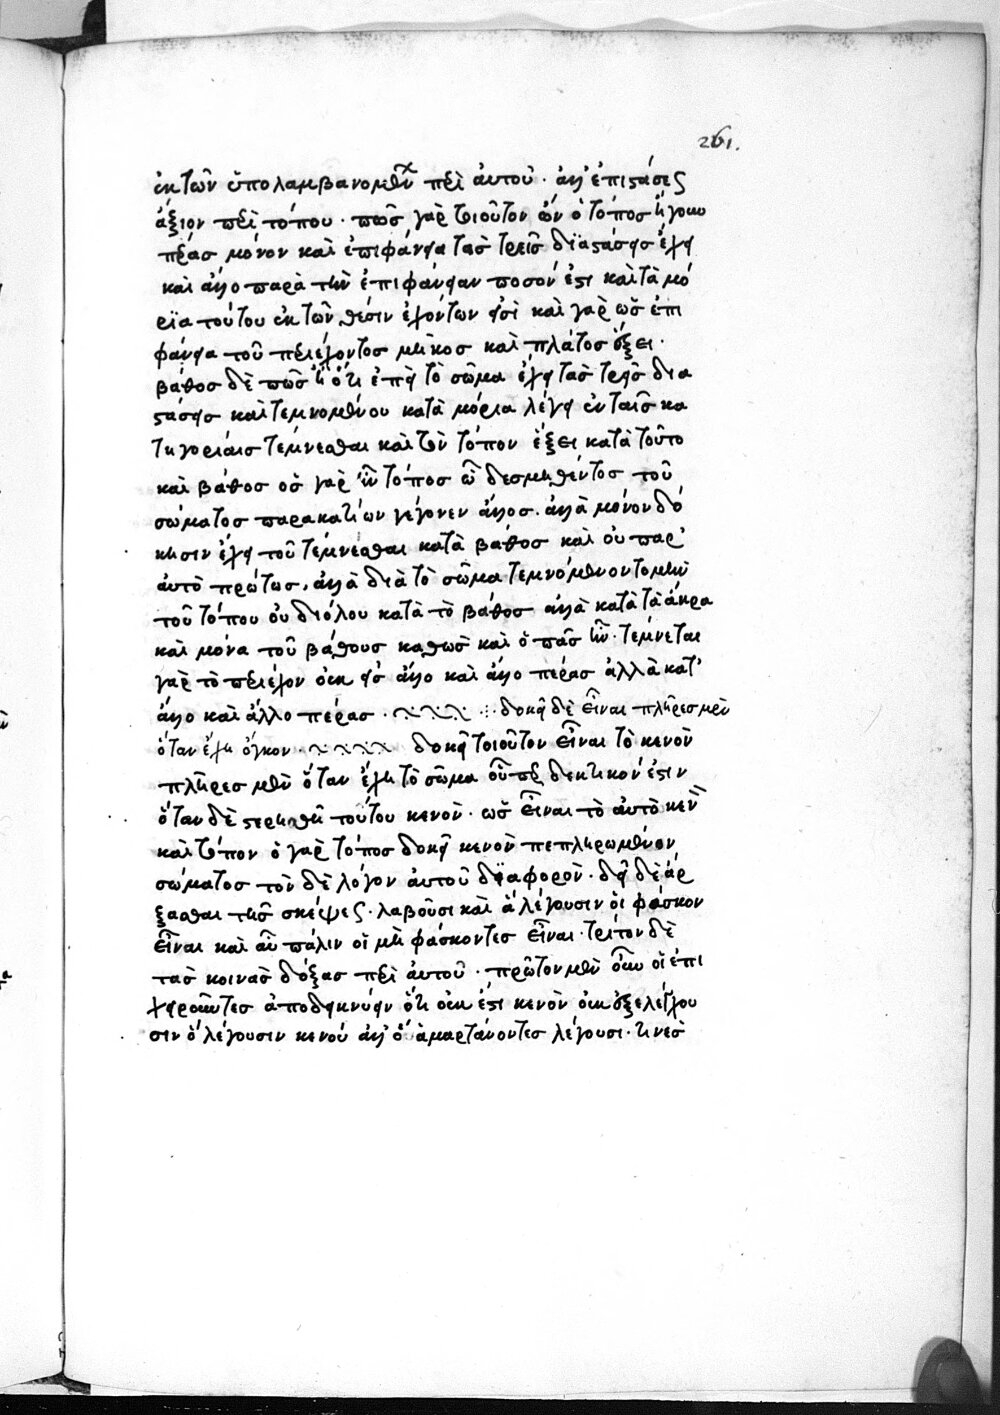 261.
ἐκ τῶν ὑπολαμβανομένων περὶ αὐτοῦ· ἀλλ' ἐπιστάσεως
ἄξιον περὶ τόπου· πῶς γὰρ τοιοῦτον ὢν ὁ τόπος ἤγουν
πέρας μόνον καὶ ἐπιφάνεια τὰς τρεῖς διαστάσεις ἔχει
καὶ ἄλλο παρὰ τὴν ἐπιφάνειαν ποσόν ἐστι καὶ τὰ μό
ρια τούτου ἐκ τῶν θέσιν ἐχόντων εἰσὶ καὶ γὰρ ὡς ἐπι
φάνεια τοῦ περιέχοντος μῆκος καὶ πλάτος ἕξει·
βάθος δὲ πῶς ἢ ὅτι ἐπεὶ τὸ σῶμα ἔχει τὰς τρεῖς δια
στάσεις καὶ τεμνομένου κατὰ μόρια λέγει ἐν ταῖς κα
τηγορίαις τέμνεσθαι καὶ τὸν τόπον ἕξει κατὰ τοῦτο
καὶ βάθος ὃς γὰρ ἦν τόπος ὢ δεσμηθέντος τοῦ
σώματος παρακατιὼν γέγονεν ἄλλος. ἀλλὰ μόνον δό
κησιν ἔχει τοῦ τέμνεσθαι κατὰ βάθος καὶ οὐ παρ'
αὐτὸ πρώτως, ἀλλὰ διὰ τὸ σῶμα τεμνόμενον τομὴν
τοῦ τόπου οὐ διόλου κατὰ τὸ βάθος ἀλλὰ κατὰ τὰ ἄκρα
καὶ μόνα τοῦ βάθους καθὼς καὶ ὁ πᾶς ἦν· τέμνεται
γὰρ τὸ περιέχον οὐκ εἰς ἄλλο καὶ ἄλλο πέρας ἀλλὰ κατ'
ἄλλο καὶ ἄλλο πέρας· δοκεῖ δὲ εἶναι πλῆρες μὲν
ὅταν ἔχη ὄγκον· δοκεῖ τοιοῦτον εἶναι τὸ κενὸν
πλῆρες μὲν ὅταν ἔχη τὸ σῶμα οὗπερ δεκτικόν ἐστιν
ὅταν δὲ στερηθῆ τούτου κενὸν· ὡς εἶναι τὸ αὐτὸ κενὸν
καὶ τόπον ὁ γὰρ τόπος δοκεῖ κενὸν πεπληρωμένον
σώματος τὸν δὲ λόγον αὐτοῦ διαφορὸν· δεῖ δὲ ἄρ
ξασθαι τῆς σκέψεως· λαβοῦσι καὶ ἃ λέγουσιν οἱ φάσκον
εἶναι καὶ αὖ πάλιν οἱ μὴ φάσκοντες εἶναι· τρίτον δὲ
τὰς κοινὰς δόξας περὶ αὐτοῦ· πρῶτον μὲν οὖν οἱ ἐπι
χειροῦντες ἀποδεικνύειν ὅτι οὐκ ἔστι κενὸν οὐκ ἐξελέγχου
σιν ὃ λέγουσιν κενόν ἀλλ' ὃ ἁμαρτάνοντες λέγουσι· τινὲς